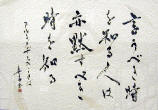 言うべき時
を知る人は
亦黙すべき
時を知る